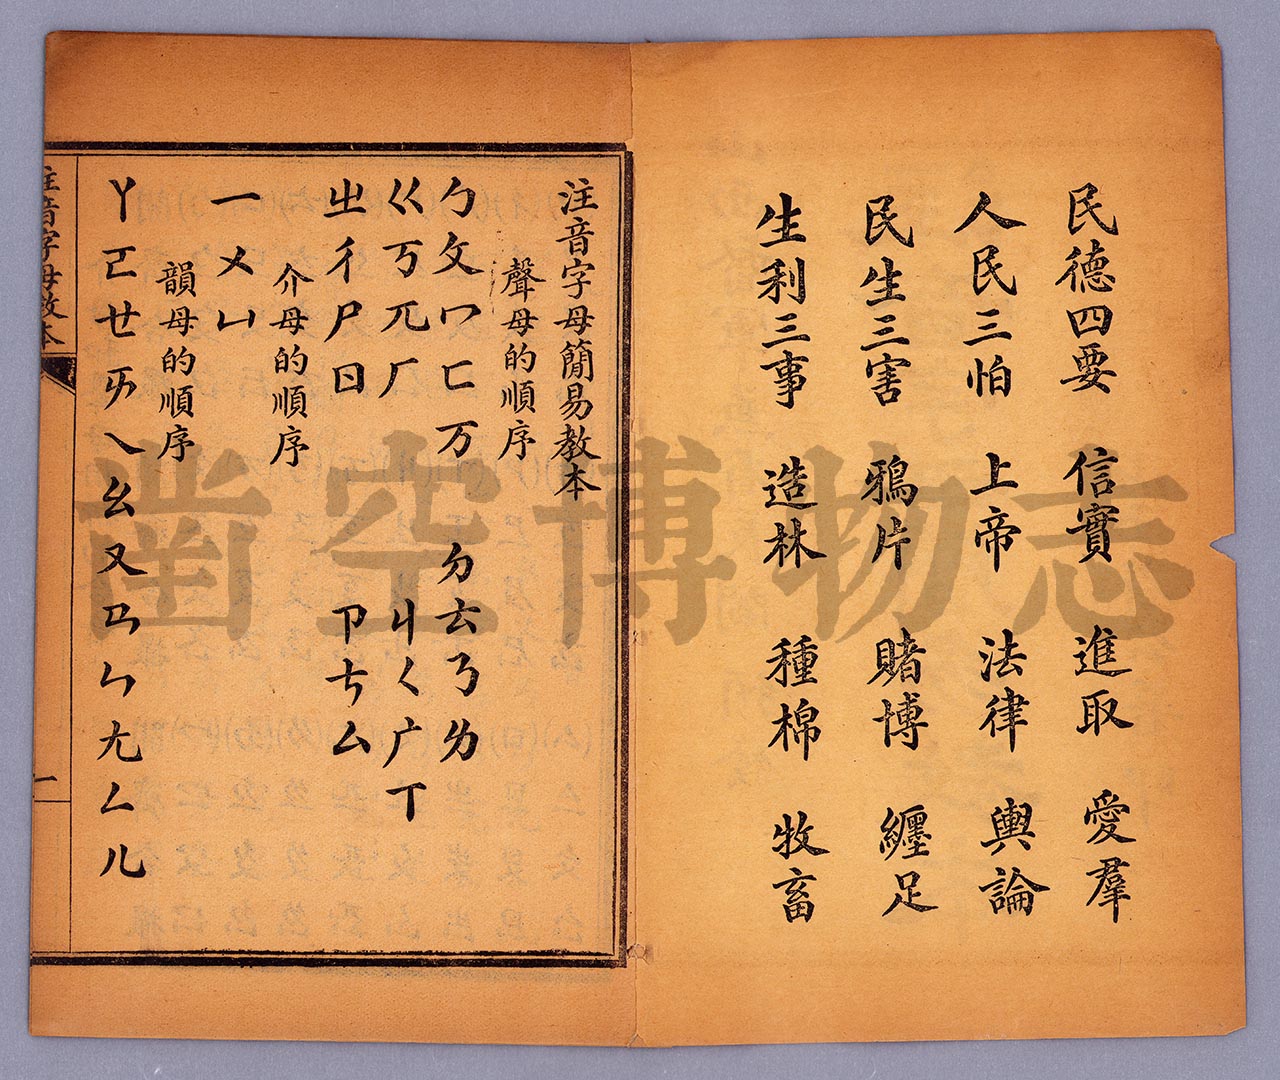 民德四要 信實 進取 愛羣
人民三怕 上帝 法律 輿論
民生三害 鴉片 賭博 纏足
生利三事 造林 種棉 牧畜
注音字母簡易教本
聲母的順序
ㄅㄆㄇㄈㄪ ㄉㄊㄋㄌ
ㄍㄎㄫㄏ ㄐㄑㄬㄒ
ㄓㄔㄕㄖ ㄗㄘㄙ
介母的順序
一ㄨㄩ
韻母的順序
ㄚㄛㄝㄞㄟㄠㄡㄢㄣㄤㄥㄦ
注音字母教本
一
凿空博物志